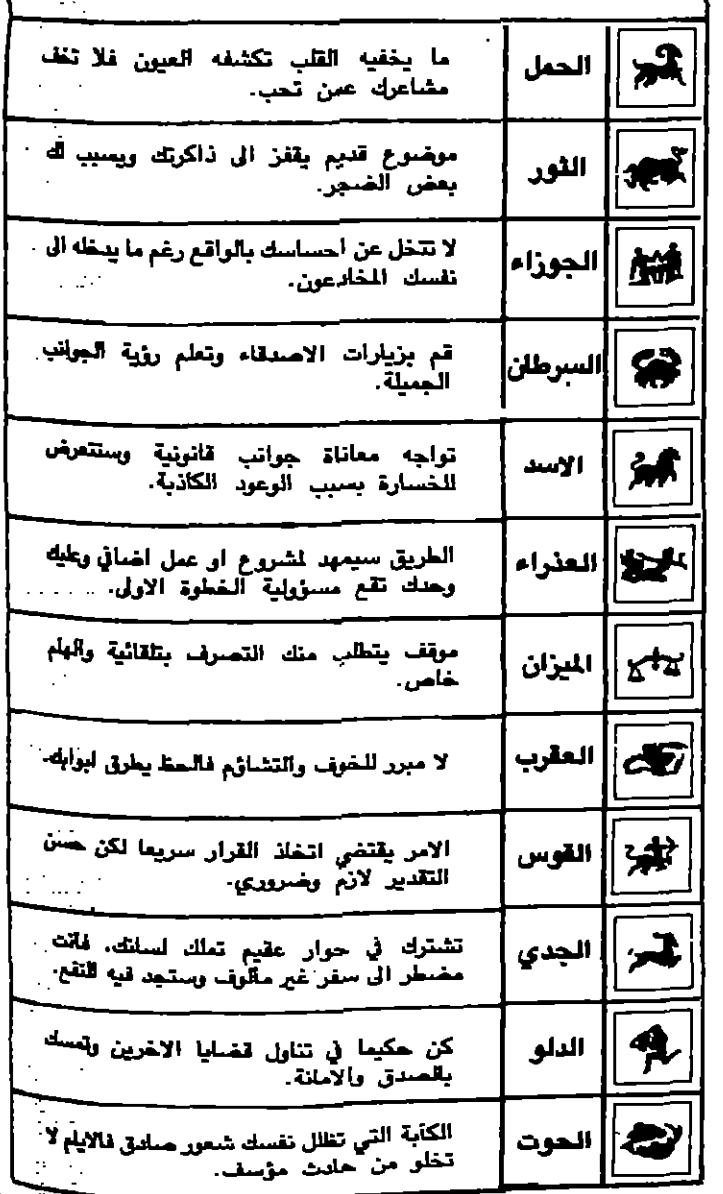 الحمل
ما يخفيه القلب تكشفه العيون فلا تخف
مشاعرك عمن تحب.
الثور
موضوع قديم يقفز الى ذاكرتك ويسبب لك
بعض الضجر.
الجوزاء
لا تتخل عن احساسك بالواقع رغم ما يدخله الى
نفسك المخادعون.
السرطان
قم بزيارات الاصدقاء وتعلم رؤية الجوانب
الجميلة.
الاسد
تواجه معاناة جوانب قانونية وستتعرض
للخسارة بسبب الوعود الكاذبة.
العذراء
الطريق سيمهد لمشروع او عمل اضافي وعليك
وحدك تقع مسؤولية الخطوة الاولى.
الميزان
موقف يتطلب منك التصرف بتلقائية والهام
خاص.
العقرب
لا مبرر للخوف والتشاؤم فالحظ يطرق ابوابك.
القوس
الامر يقتضي اتخاذ القرار سريعا لكن حسن
التقدير لازم وضروري.
الجدي
تشترك في حوار عقيم تملك لسانك، فانت
مضطر الى سفر غير مألوف وستجد فيه النفع.
الدلو
كن حكيما في تناول قضايا الاخرين وتمسك
بالصدق والامانة.
الحوت
الكآبة التي تظلل نفسك شعور صادق فالايام لا
تخلو من حادث مؤسف.